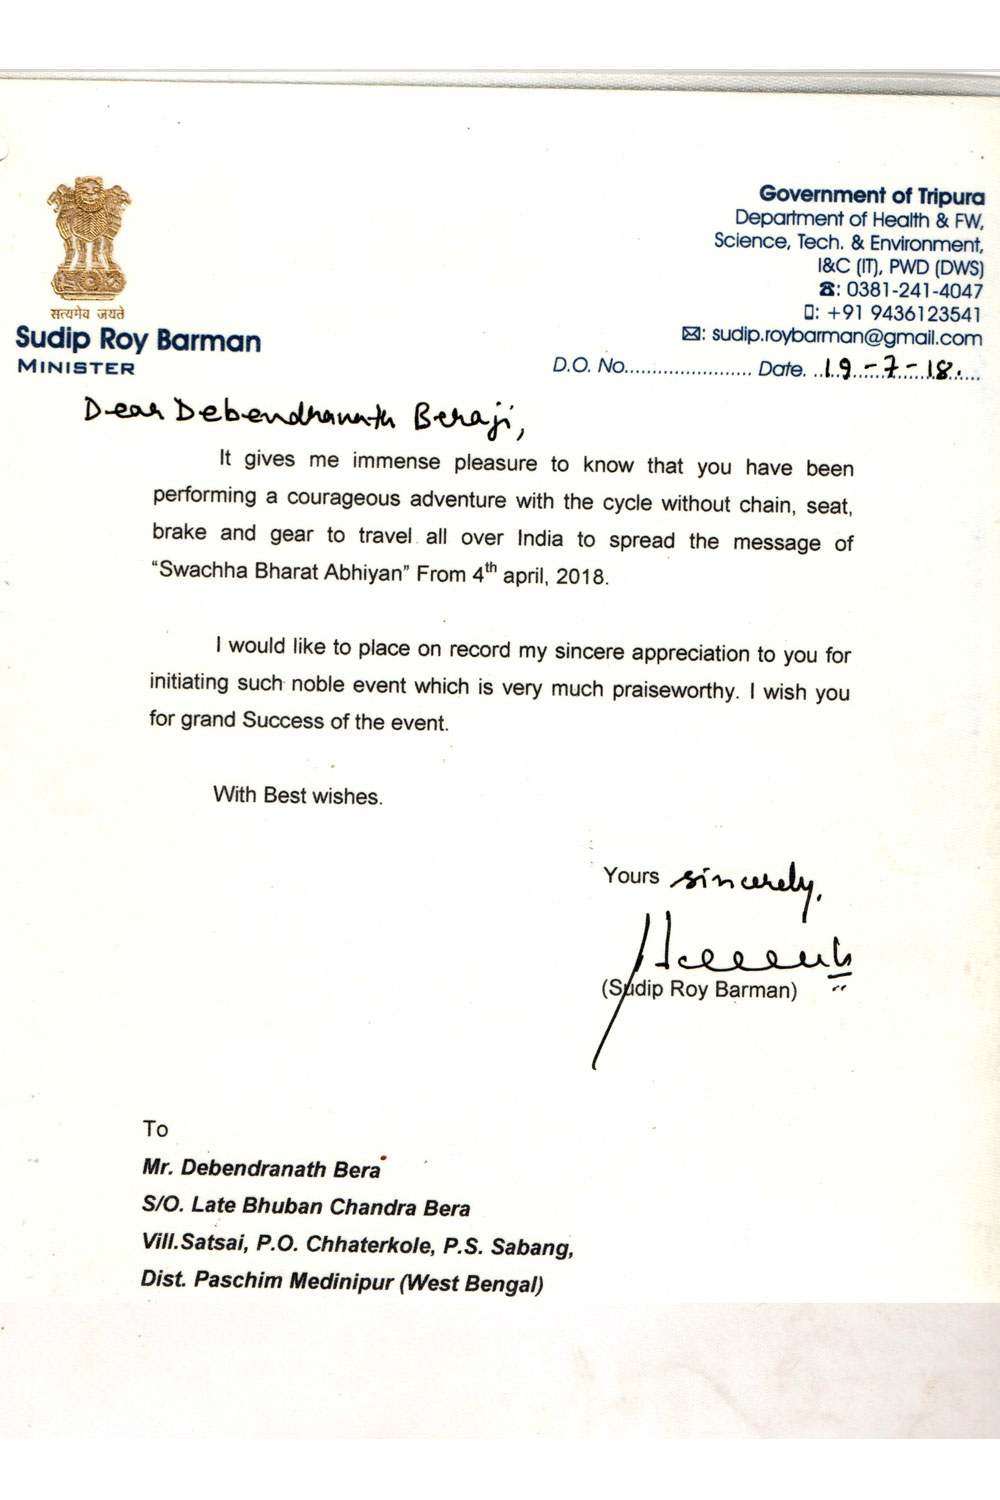 सत्यमेव जयते
Sudip Roy Barman
MINISTER
Government of Tripura
Department of Health & FW,
Science, Tech. & Environment,
I&C (IT), PWD (DWS)
☎: 0381-241-4047
▯: +91 9436123541
✉: sudip.roybarman@gmail.com
D.O. No....................... Date. ..19.-7-18......
Dear Debendhranath Beraji,
It gives me immense pleasure to know that you have been
performing a courageous adventure with the cycle without chain, seat,
brake and gear to travel all over India to spread the message of
“Swachha Bharat Abhiyan” From 4th april, 2018.
I would like to place on record my sincere appreciation to you for
initiating such noble event which is very much praiseworthy. I wish you
for grand Success of the event.
With Best wishes.
Yours sincerely,
(Sudip Roy Barman)
To
Mr. Debendranath Bera
S/O. Late Bhuban Chandra Bera
Vill.Satsai, P.O. Chhaterkole, P.S. Sabang,
Dist. Paschim Medinipur (West Bengal)